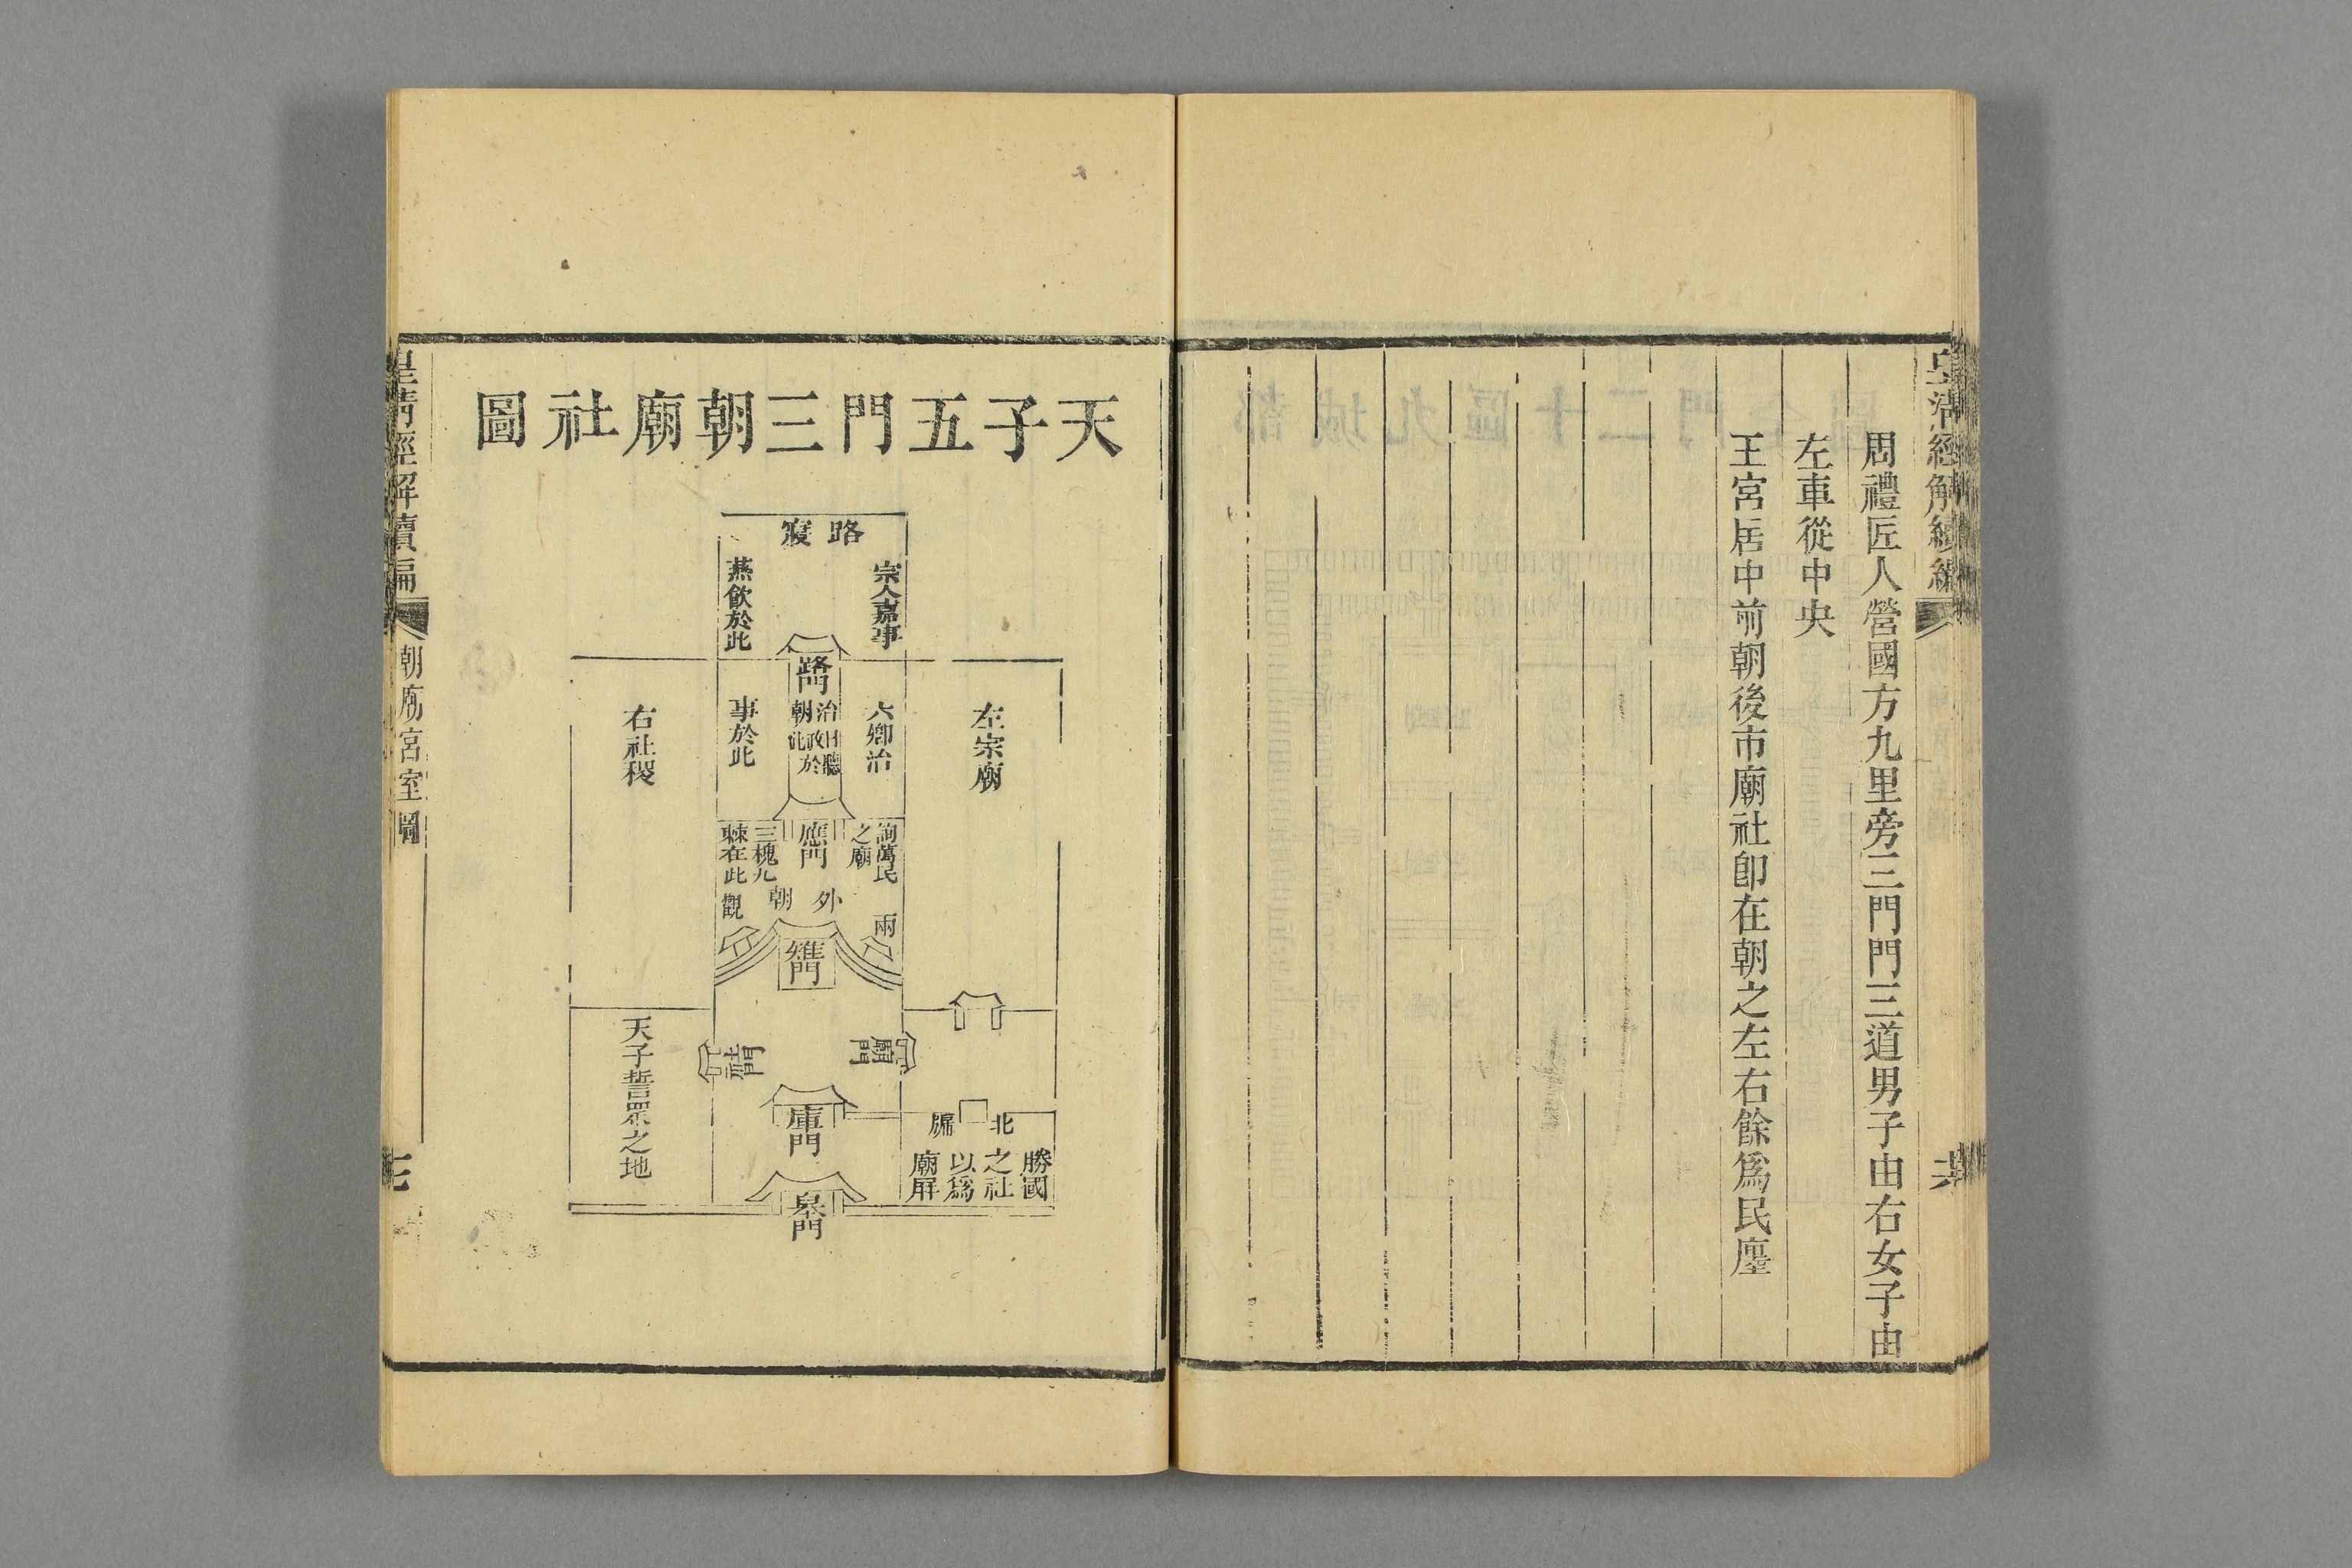 皇清經解續編
周禮匠人營國方九里旁三門門三道男子由右女子由
左車從中央
王宮居中前朝後市廟社卽在朝之左右餘爲民廛
天子五門三朝廟社圖
路寢
宗人嘉事
燕飲於此
路門
左宗廟
六卿治
事於此
治朝
日聽政於此
右社稷
應門
詢萬民
之廟
三槐九
棘在此
外朝
兩觀
雉門
廟門
社門
天子誓眾之地
庫門
北牖
勝國
之社
以爲
廟屏
皋門
皇清經解續編
朝廟宮室圖